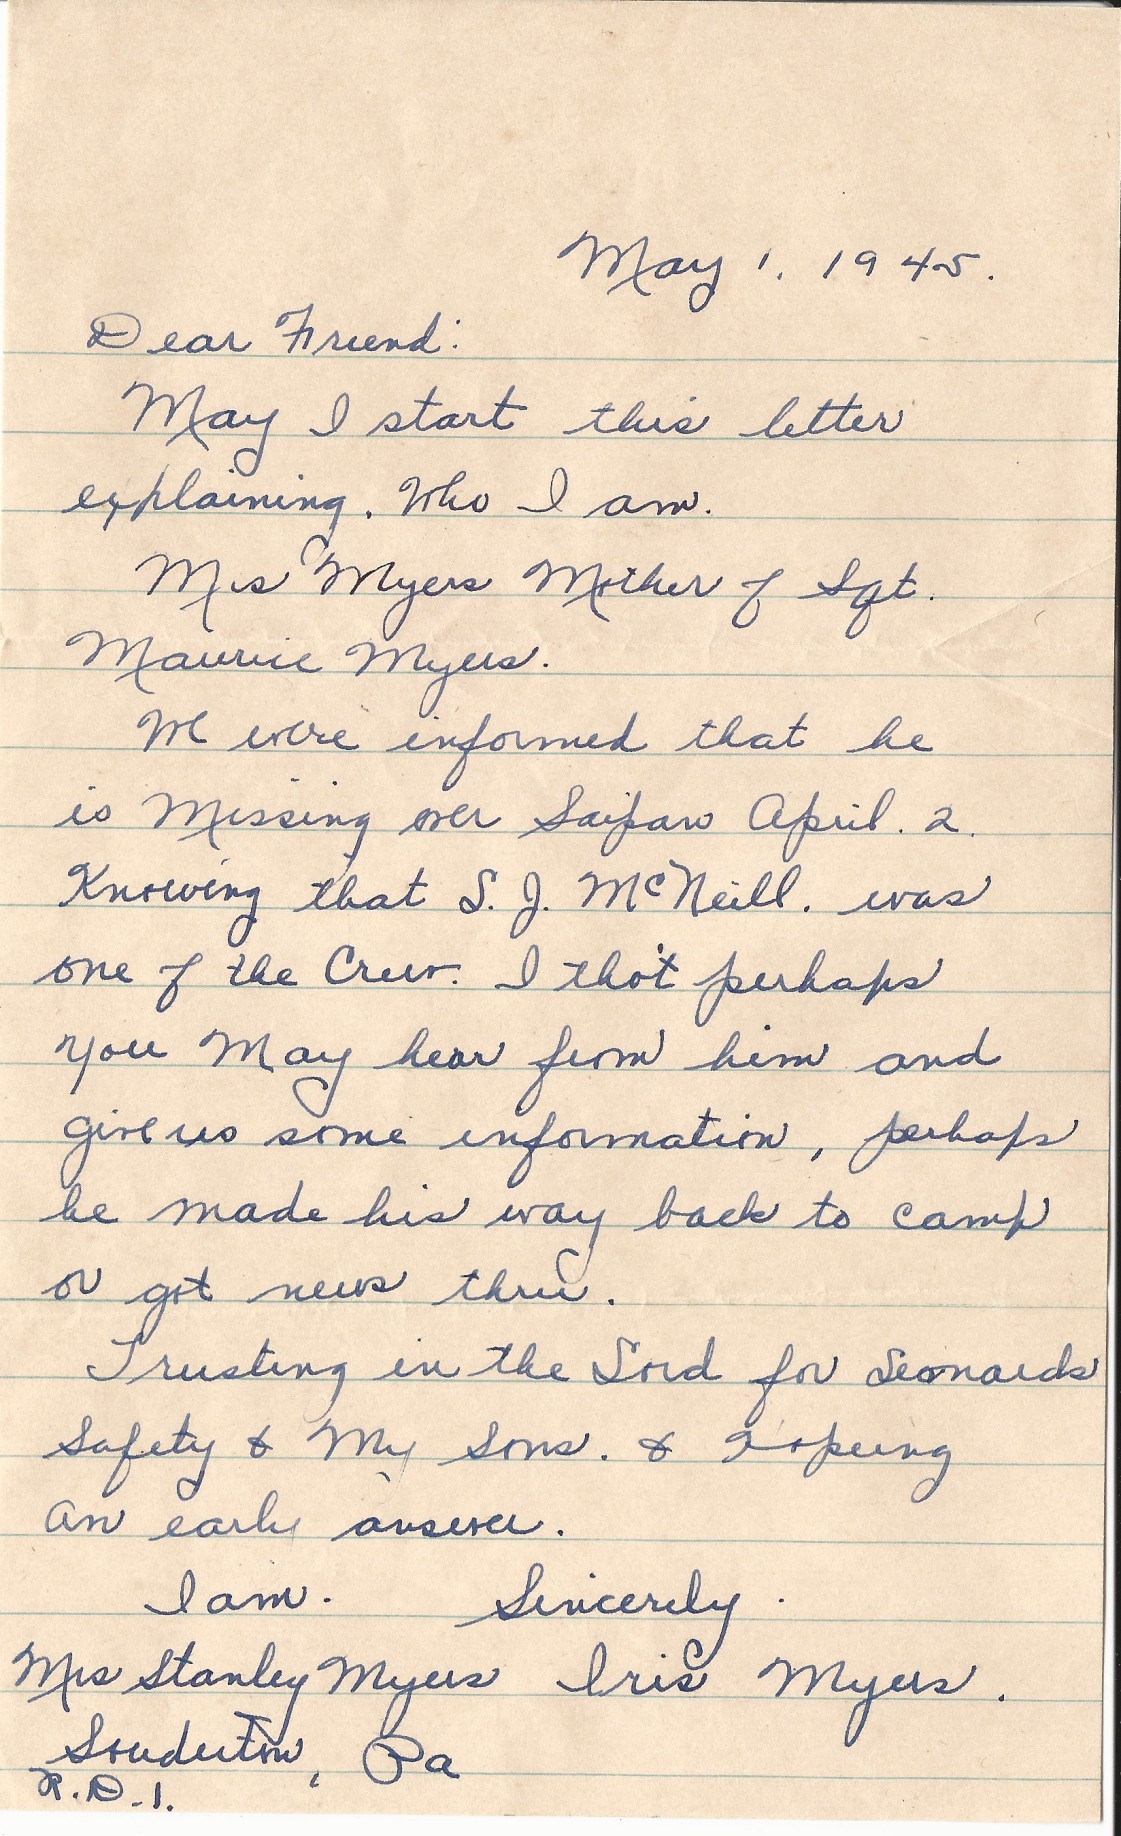 May 1, 1945.
Dear Friend:
May I start this letter
explaining. Who I am.
Mrs Myers Mother of Sgt.
Maurice Myers.
We were informed that he
is Missing over Saipan April. 2.
Knowing that S. J. McNeill. was
one of the Crew. I tho't perhaps
you May hear from him and
give us some information, perhaps
he made his way back to camp
or got news thru.
Trusting in the Lord for Leonards
Safety & My Sons. & Hopeing
an early answer.
I am. Sincerely.
Mrs Stanley Myers Iris Myers.
Souderton, Pa
R.D.1.